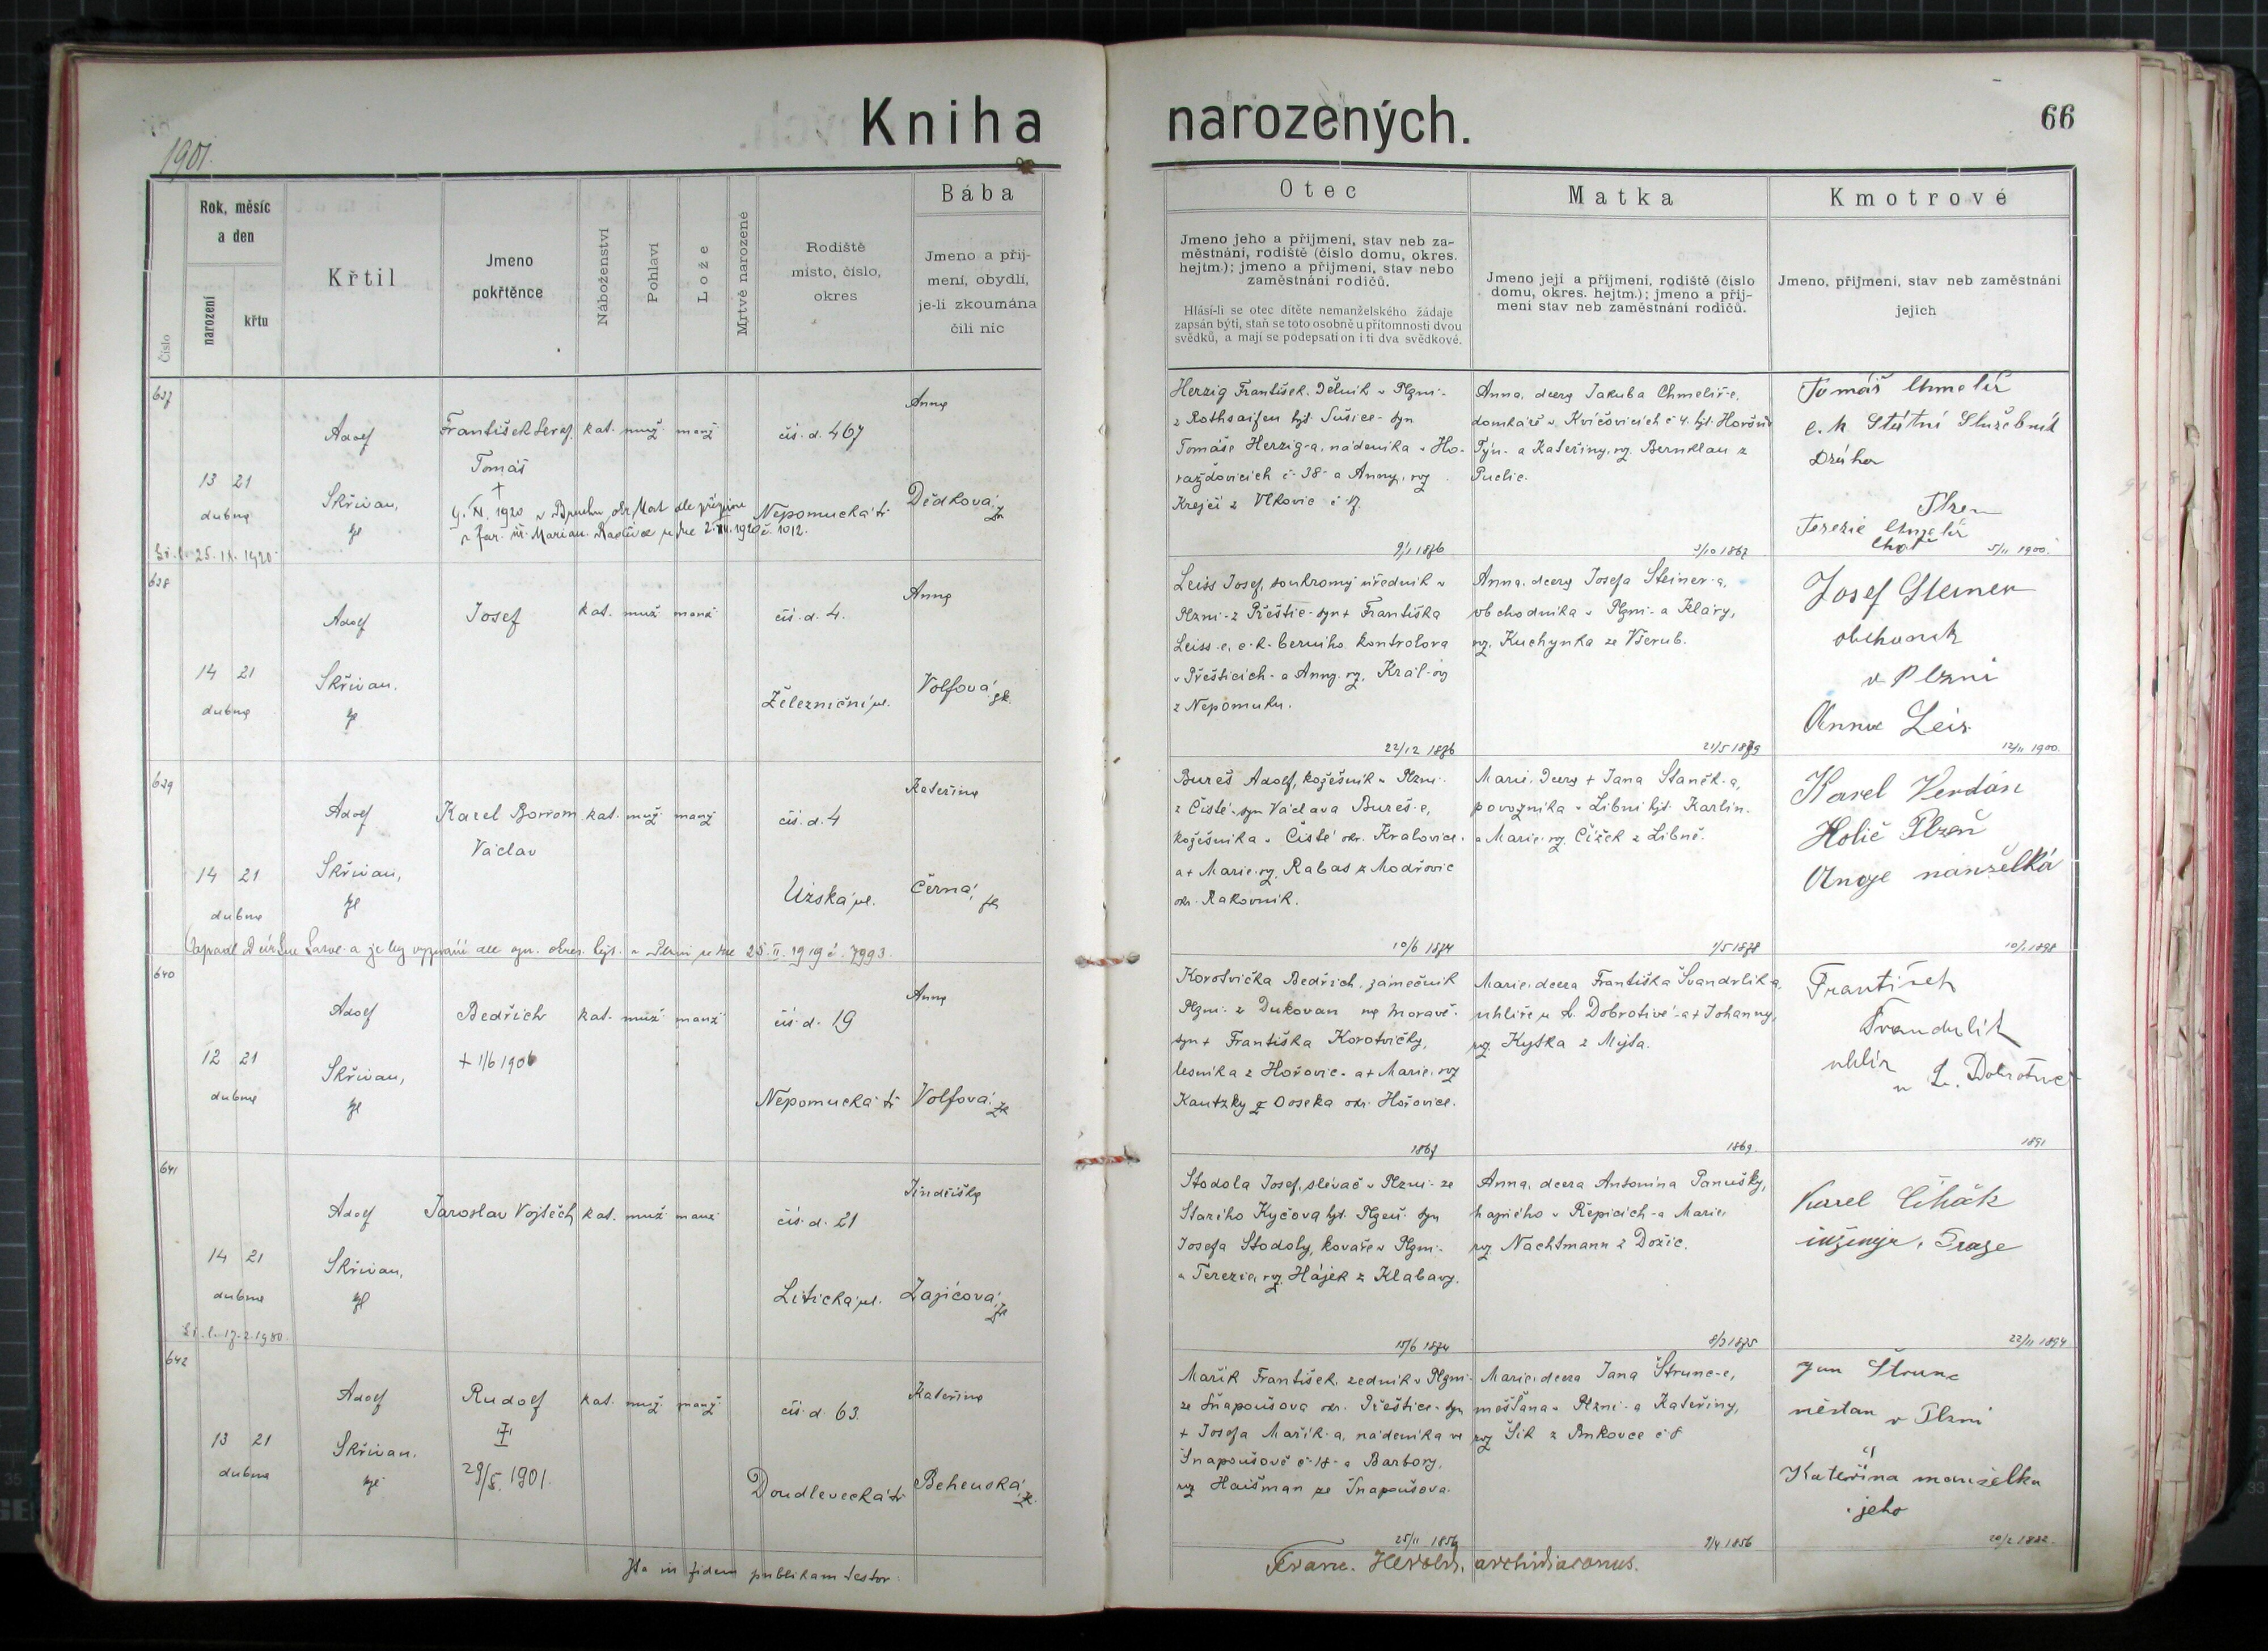 Kniha
narozených.
66
1901.
Číslo
Rok, měsíc
a den
narození
křtu
Křtil
Jmeno
pokřtěnce
Náboženství
Pohlaví
Lože
Mrtvě narozené
Rodiště
místo, číslo,
okres
Bába
Jmeno a příj-
mení, obydlí,
je-li zkoumána
čili nic
Otec
Jmeno jeho a příjmení, stav neb za-
městnání, rodiště (číslo domu, okres.
hejtm.); jmeno a příjmení, stav nebo
zaměstnání rodičů.
Hlásí-li se otec dítěte nemanželského žádaje
zapsán býti, staň se toto osobně u přítomnosti dvou
svědků, a mají se podepsati on i ti dva svědkové.
Matka
Jmeno její a příjmení, rodiště (číslo
domu, okres. hejtm.); jmeno a příj-
mení stav neb zaměstnání rodičů.
Kmotrové
Jmeno, příjmení, stav neb zaměstnání
jejich
637
13 21
dubna
25. IX. 1920
Adolf
Skřivan,
František Seraf.
Tomáš
†
1920 v
1012.
kat. muž. manž
čís. d. 467
Nepomucká tř
Anna
Dědková
Herzig František, dělník v Plzni-
z Rothsaifen hjt. Sušice- syn
Tomáše Herzig-a, nádeníka v Ho-
ražďovicích č. 38- a Anny, roz
Krejčí z Vlkovic č
9/1 1876
Anna, dcera Jakuba Chmelíř-e,
domkáře v Kvíčovicích č 4. hjt. Horšův
Týn- a Kateřiny, roz. Bernklau z
Puclic.
3/10 1867
Tomáš Chmelíř
c. k. Státní Služebník
Dráha
Plzen
Terezie Chmelíř
choť
5/11 1900.
638
14 21
dubna
Adolf
Skřivan.
Josef
kat. muž manž
čís. d. 4.
Železniční ul.
Anna
Volfová
Leiss Josef, soukromý úředník v
Plzni- z Přeštic- syn + Františka
Leiss-e, c. k. berního kontrolora
v Přešticích- a Anny, roz. Král-ov
z Nepomuku.
22/12 1876
Anna, dcera Josefa Steiner-a,
obchodníka v Plzni- a Kláry,
roz. Kuchynka ze Všerub.
21/5 1879
Josef Steiner
v Plzni
Anna Leis
12/11 1900.
639
14 21
dubna
Adolf
Skřivan,
Karel Borrom
Václav
kat. muž manž
čís. d. 4
Úzská ul.
Kateřina
Černá,
25. II. 1919 č. 7993.
Bureš Adolf, kožešník v Plzni-
z Čisté- syn Václava Bureš-e,
kožešníka v Čisté okr. Kralovice-
a + Marie, roz. Rabas z Modřovic
okr. Rakovník.
10/6 1874
Marie, dcera + Jana Staněk-a,
povozníka v Libni hjt. Karlín-
a Marie, roz. Čížek z Libně.
1/5 1878
Karel Verdán
Holič Plzeň
manželka
1898
640
12 21
dubna
Adolf
Skřivan,
Bedřich
+ 1/6 1901
kat. muž manž
čís. d. 19
Nepomucká tř
Anna
Volfová
Korotvička Bedřich, zámečník
Plzni- z Dukovan na Moravě-
syn + Františka Korotvičky,
lesníka z Hořovic- a + Marie, roz
Kautzky z Ooseka okr. Hořovice.
1867
Marie, dcera Františka Švandrlík-a,
uhlíře u S. Dobrotivé- a + Johanny,
roz. Kytka z Mýta.
1869.
František
Švandrlík
uhlíř
u S. Dobrotivé
1891
641
14 21
dubna
17. 2. 1980.
Adolf
Skřivan,
Jaroslav Vojtěch
kat. muž manž
čís. d. 21
Litická ul.
Jindřiška
Zajícová
Stodola Josef, slévač v Plzni- ze
Starého Kyčova hjt. Plzeň- syn
Josefa Stodoly, kováře v Plzni-
a Terezie, roz. Hájek z Klabavy.
15/6 1874
Anna, dcera Antonína Panušky,
hajného v Řepicích- a Marie,
roz Nachtmann z Dožic.
8/3 1875
Karel Čihák
Praze
22/11 1894
642
13 21
dubna
Adolf
Skřivan.
Rudolf
29/5. 1901.
kat. muž manž
čís. d. 63.
Doudlevecká tř
Kateřina
Behenská
Mařík František, zedník v Plzni-
ze Snapoušova okr. Přeštice- syn
+ Josefa Mařík-a, nádeníka ve
Snapoušově č- 18- a Barbory,
roz Haišman ze Snapoušova.
25/11 1856
Marie, dcera Jana Štrunc-e,
měšťana v Plzni- a Kateřiny,
roz Šik z Bukovce č 8
9/4 1856
Jan Štrunc
měšťan v Plzni
Kateřina manželka
jeho
20/2 1882.
Ita in fidem publikam testor
Franc. Herold, archidiaconus.